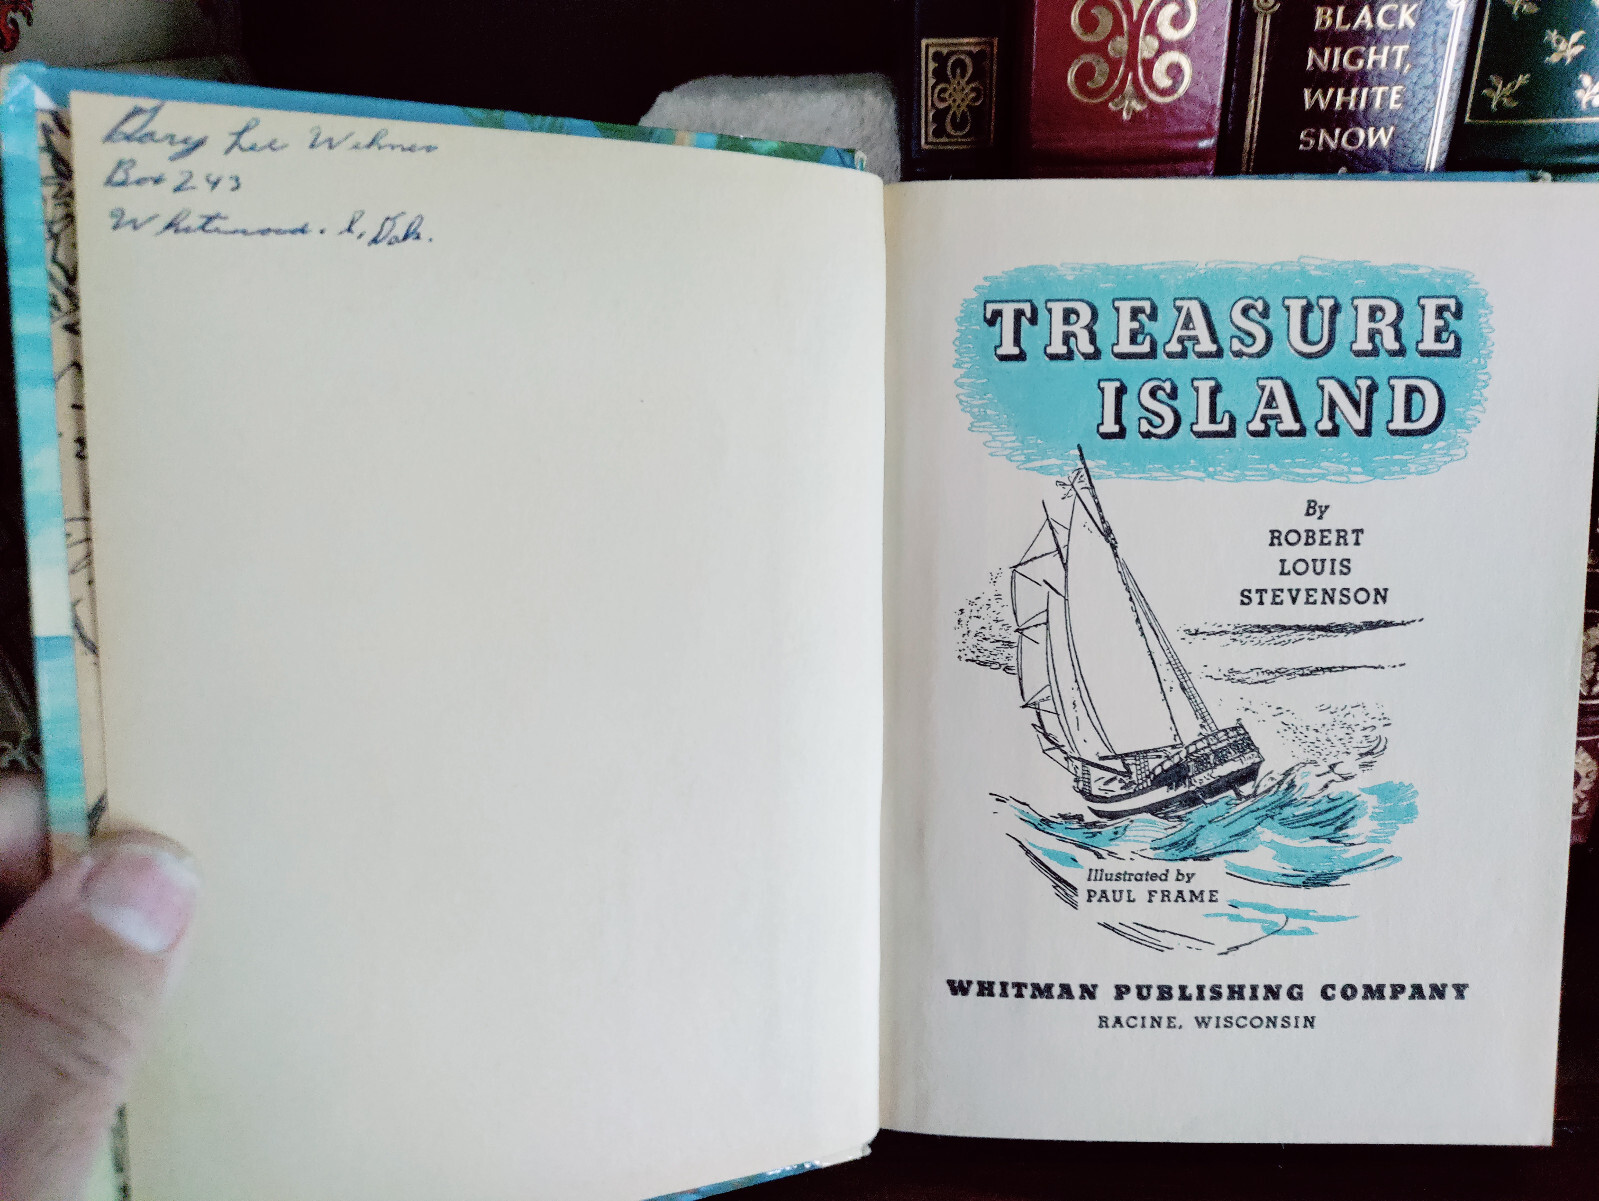 Gary Lee Wehmer
Box 243
Whitewood. S. Dak.
BLACK
NIGHT,
WHITE
SNOW
TREASURE
ISLAND
By
ROBERT
LOUIS
STEVENSON
Illustrated by
PAUL FRAME
WHITMAN PUBLISHING COMPANY
RACINE, WISCONSIN